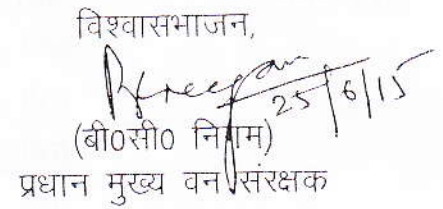 विश्वासभाजन,
25/6/15
(बी0सी0 निगम)
प्रधान मुख्य वन संरक्षक